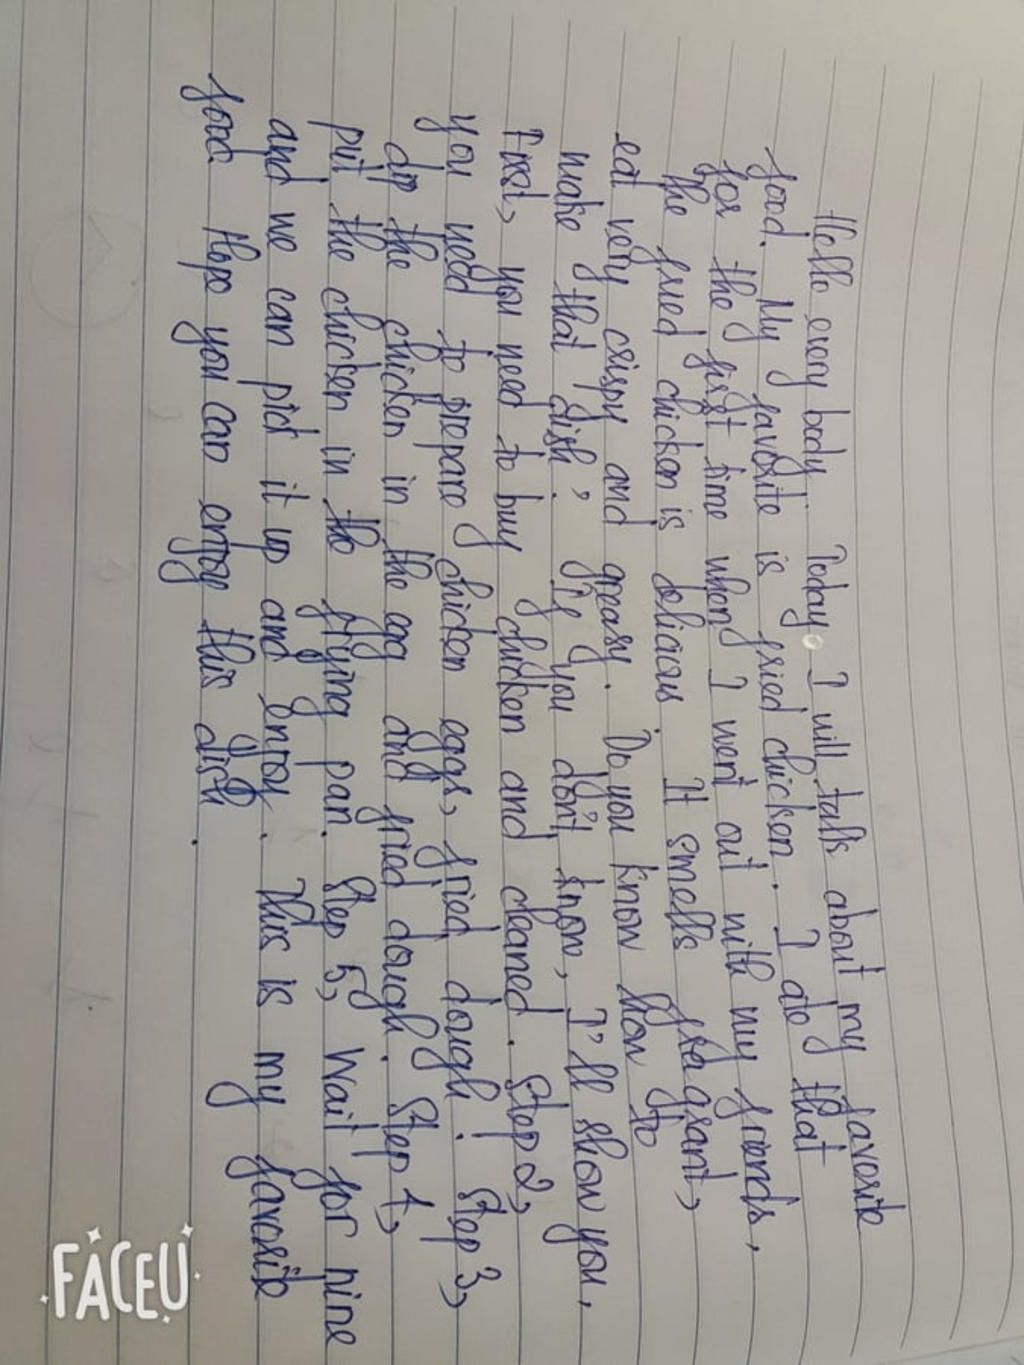 Hello every body. Today I will talk about my favorite
food. My favorite is fried chicken. I ate that
for the first time when I went out with my friends,
the fried chicken is delicious. It smells fragrant,
eat very crispy and greasy. Do you know how to
make that dish? If you don't know, I'll show you,
First, you need to buy chicken and cleaned. Step 2,
you need to prepare chicken eggs, fried dough! Step 3,
dip the chicken in the egg and fried dough. Step 4,
put the chicken in the frying pan. Step 5, Wait for nine
and we can pict it up and enjoy. This is my favorite
food. Hope you can enjoy this dish.
FACEU